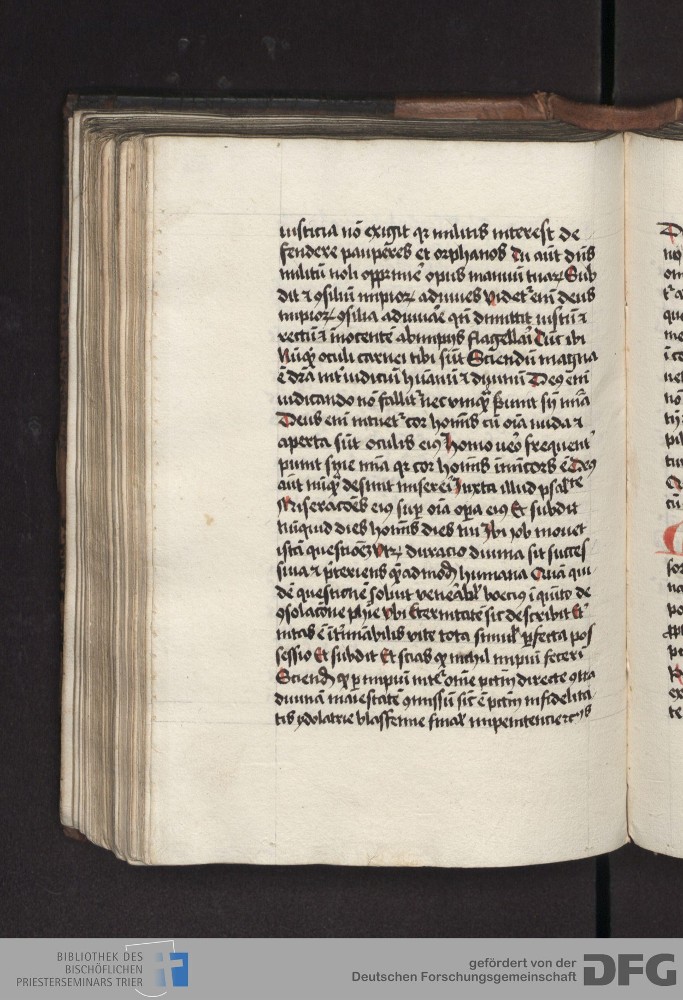 iusticia nō exigit qr militis interest de
fendere pauperes et orphanos Tu aūt dn̄s
militū noli opprimē opus manuū tuaꝝ Sub
dit ⁊ ꝯsiliū impioꝝ adiuues Videt᷑ em̄ deus
impioꝝ ꝯsilia adiuuāe qn̄ dimittit iustū ⁊
rectū ⁊ īnocentē ab impijs flagellari Dicit ibi
Nūqͥd oculi carnei tibi sūt Sciendū magna
ē dr̄a int᷑ iudiciū hūanū ⁊ diuinū Deꝰ em̄
iudicando nō fallit᷑ nec vnqͣ punit sn̄ mīa
Deus em̄ intuet᷑ cor homīs cū oīa nuda ⁊
aperta sūt oculis eiꝰ Homo vero frequent᷑
punit sine mīa qr cor homīs īmīcors ē Deꝰ
aūt nūqͣ desinit misereri Iuxta illud psalᵗᵉ
Miseracōes eiꝰ suꝑ oīa oꝑa eiꝰ Et subdit
nūquid dies homīs dies tui Ibi iob mouet
istā questionē Vtꝝ duracio diuina sit succes
siua ⁊ p̄teriens qͣadmodū humana Quā qui
dē questionē soluit venerabil᷑ boeciꝰ ī quīto de
ꝯsolacōne phīe Vbi Eternitatē sic describit Et᷑
nitas ē īt᷑minabilis vite tota simul ꝑfecta pos
sessio Et subdit Et scias ꝙ nichil impiū fecerī
Sciendū ꝙ ꝑ impiū int᷑ omē pctm̄ directe ꝯtra
diuinā maiestatē ꝯmissū sic ē pctm̄ infidelita
tis ydolatrie blasfemie final᷑ impenitencie
BIBLIOTHEK DES
BISCHÖFLICHEN
PRIESTERSEMINARS TRIER
gefördert von der
Deutschen Forschungsgemeinschaft
DFG